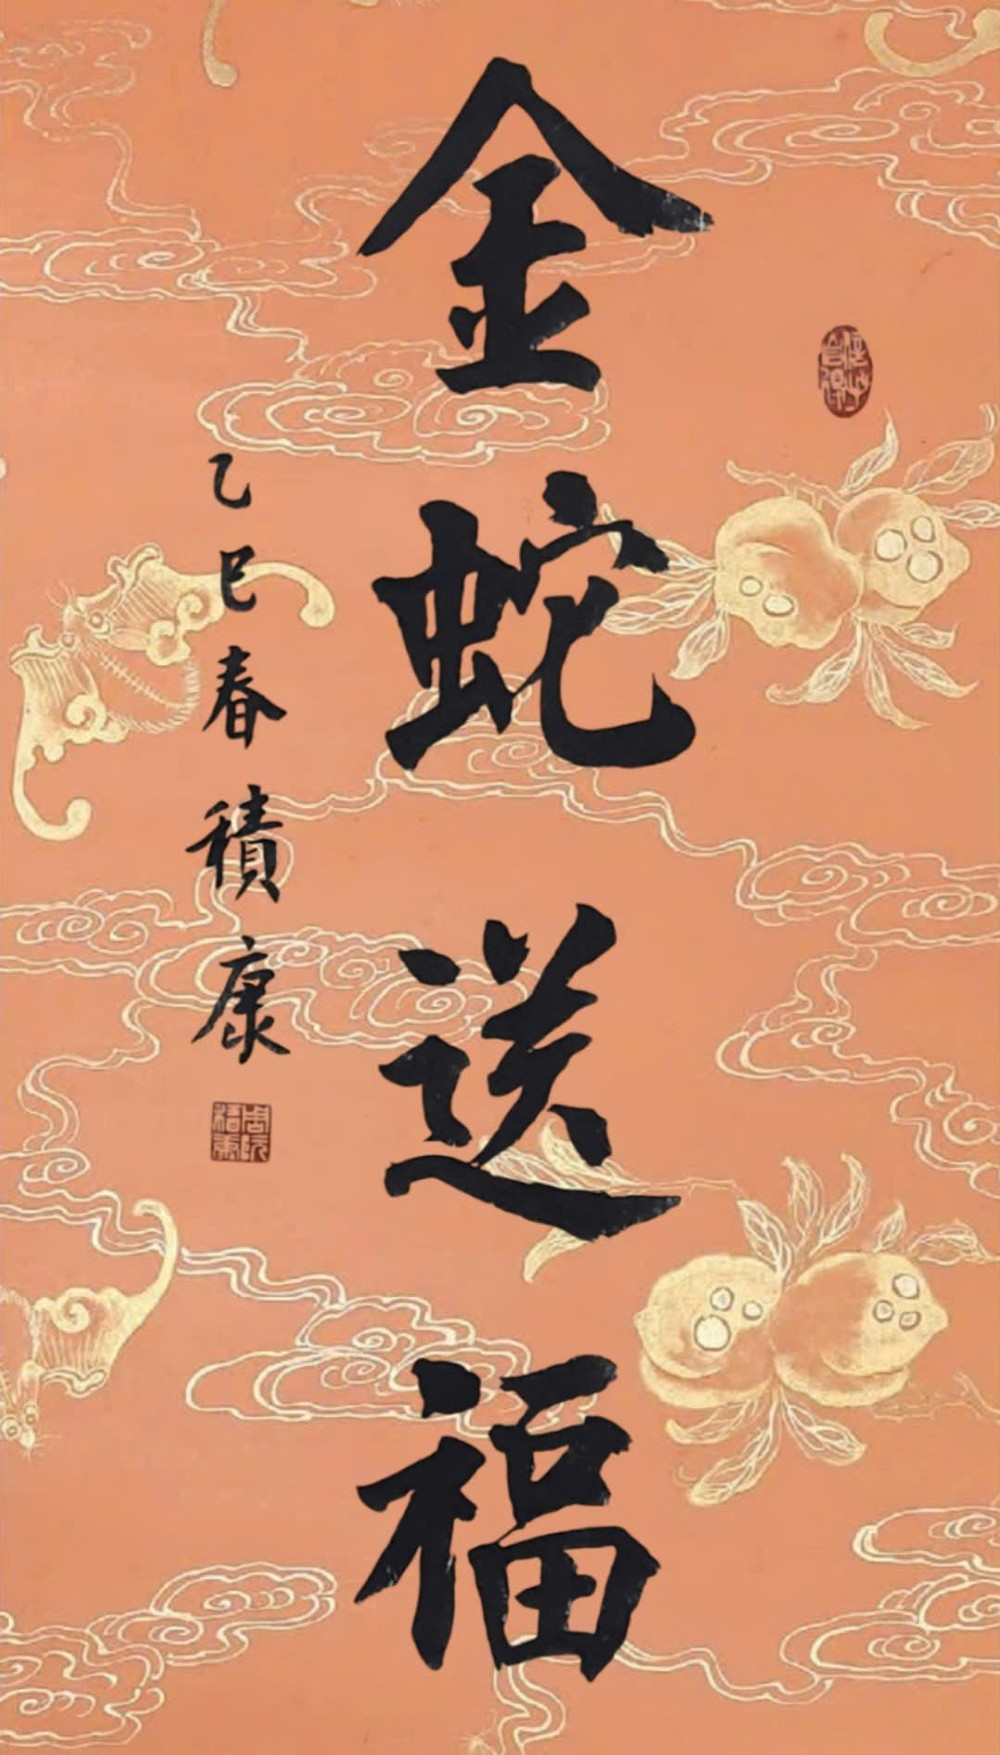 金蛇送福
乙巳春積康